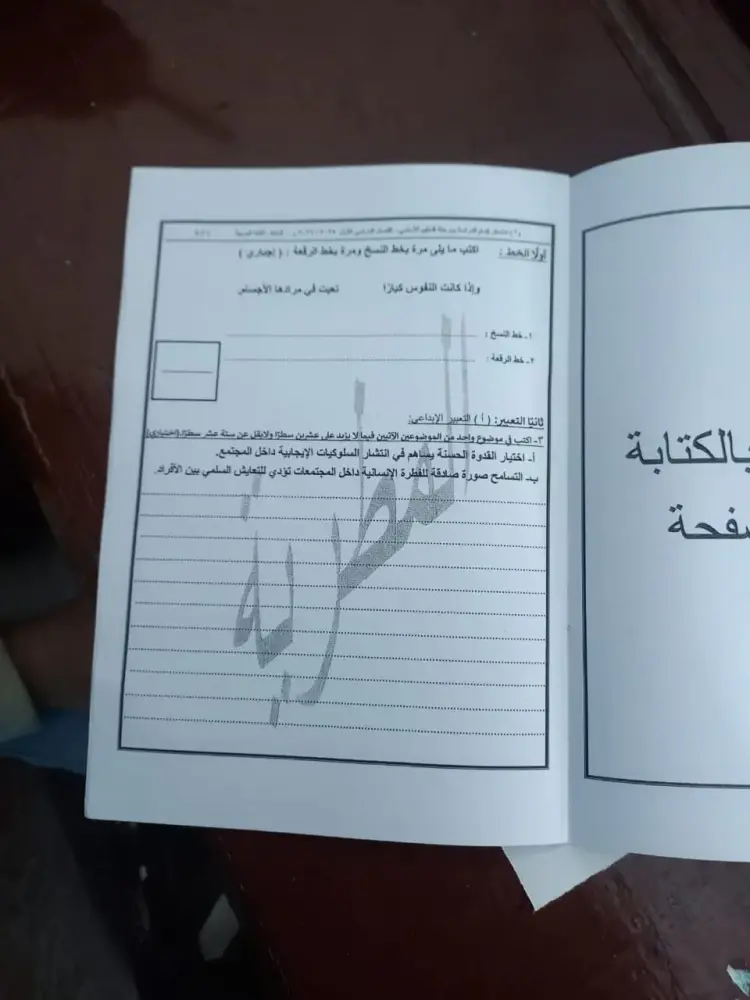 أولًا الخط : اكتب ما يلى مرة بخط النسخ ومرة بخط الرقعة : ( إجبارى )
وإذا كانت النفوس كبارًا تعبت في مرادها الأجسام
١- خط النسخ :
٢- خط الرقعة :
ثانيًا التعبير: ( أ ) التعبير الإبداعي:
٣- اكتب في موضوع واحد من الموضوعين الآتيين فيما لا يزيد على عشرين سطرًا ولا يقل عن ستة عشر سطرًا. (اختيارى)
أ- اختيار القدوة الحسنة يساهم في انتشار السلوكيات الإيجابية داخل المجتمع.
ب- التسامح صورة صادقة للفطرة الإنسانية داخل المجتمعات تؤدي للتعايش السلمي بين الأفراد.
المطرية
بالكتابة